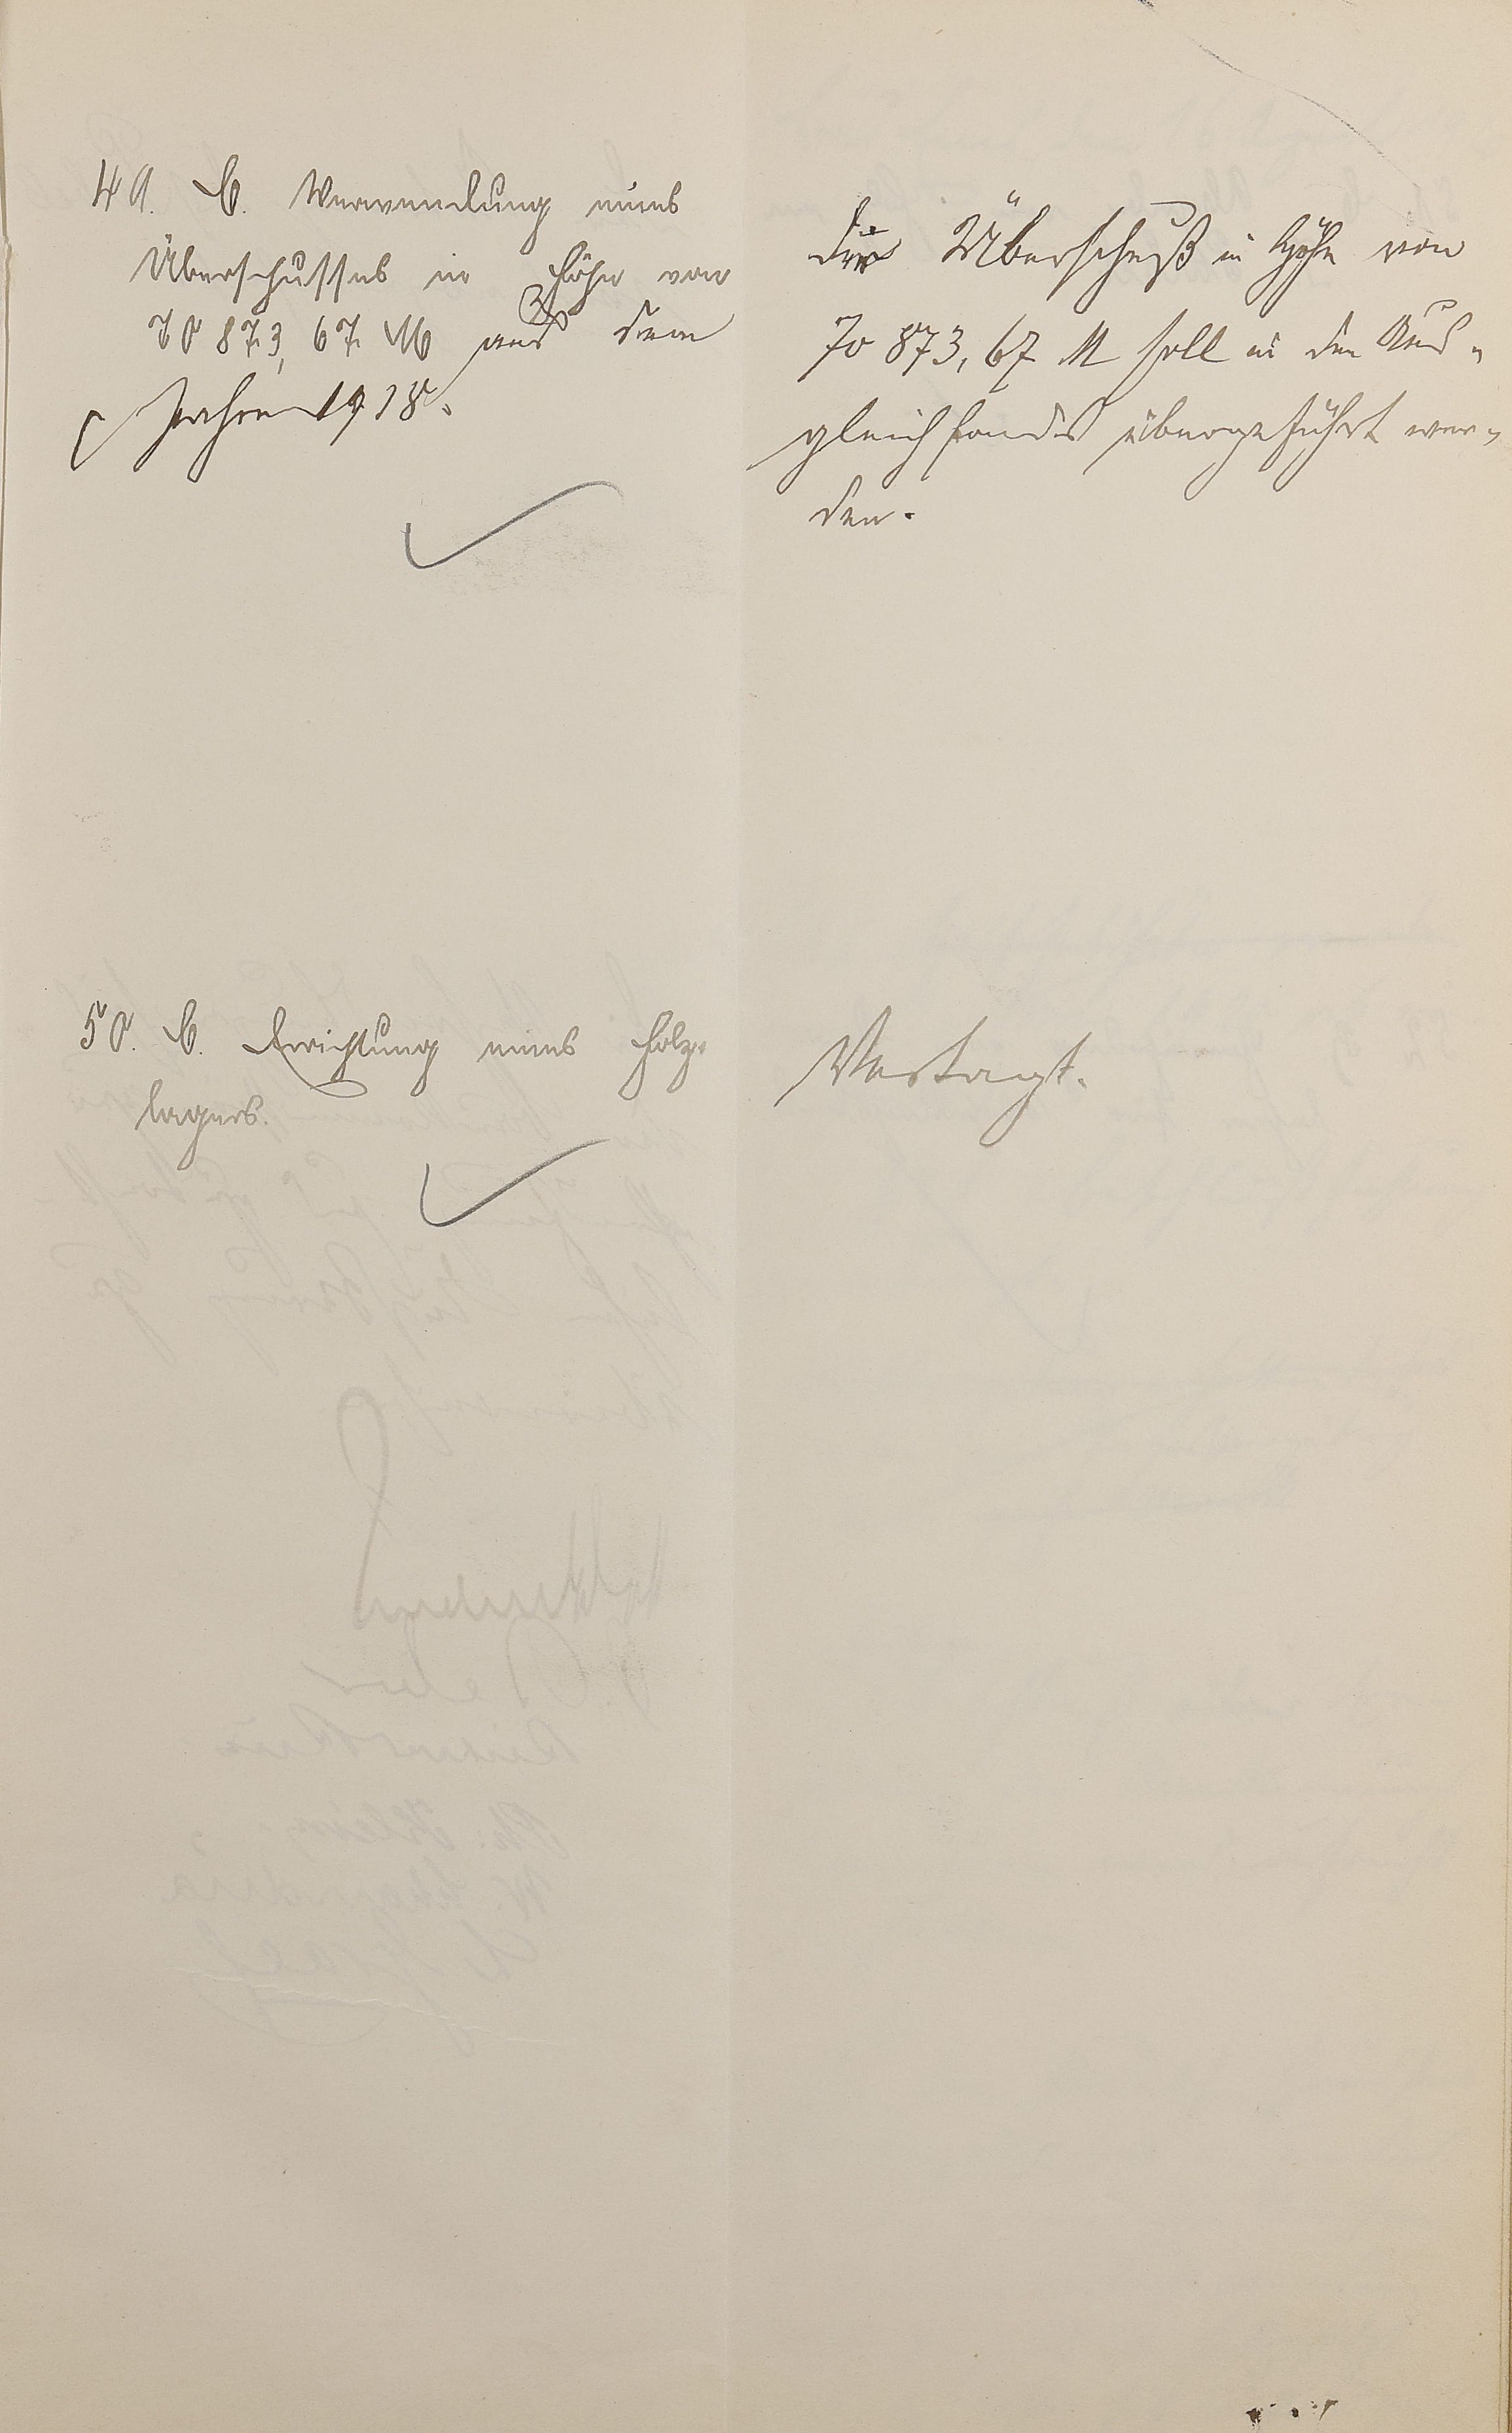 49. C. Verwendung eines
Überschusses in Höhe von
70 873, 67 M aus dem
Jahre 1918.
Der Überschuß in Höhe von
70 873, 67 M soll in den Aus-
gleichfonds übergeführt wer-
den.
50. C. Errichtung eines Holz-
lagers.
Vertagt.